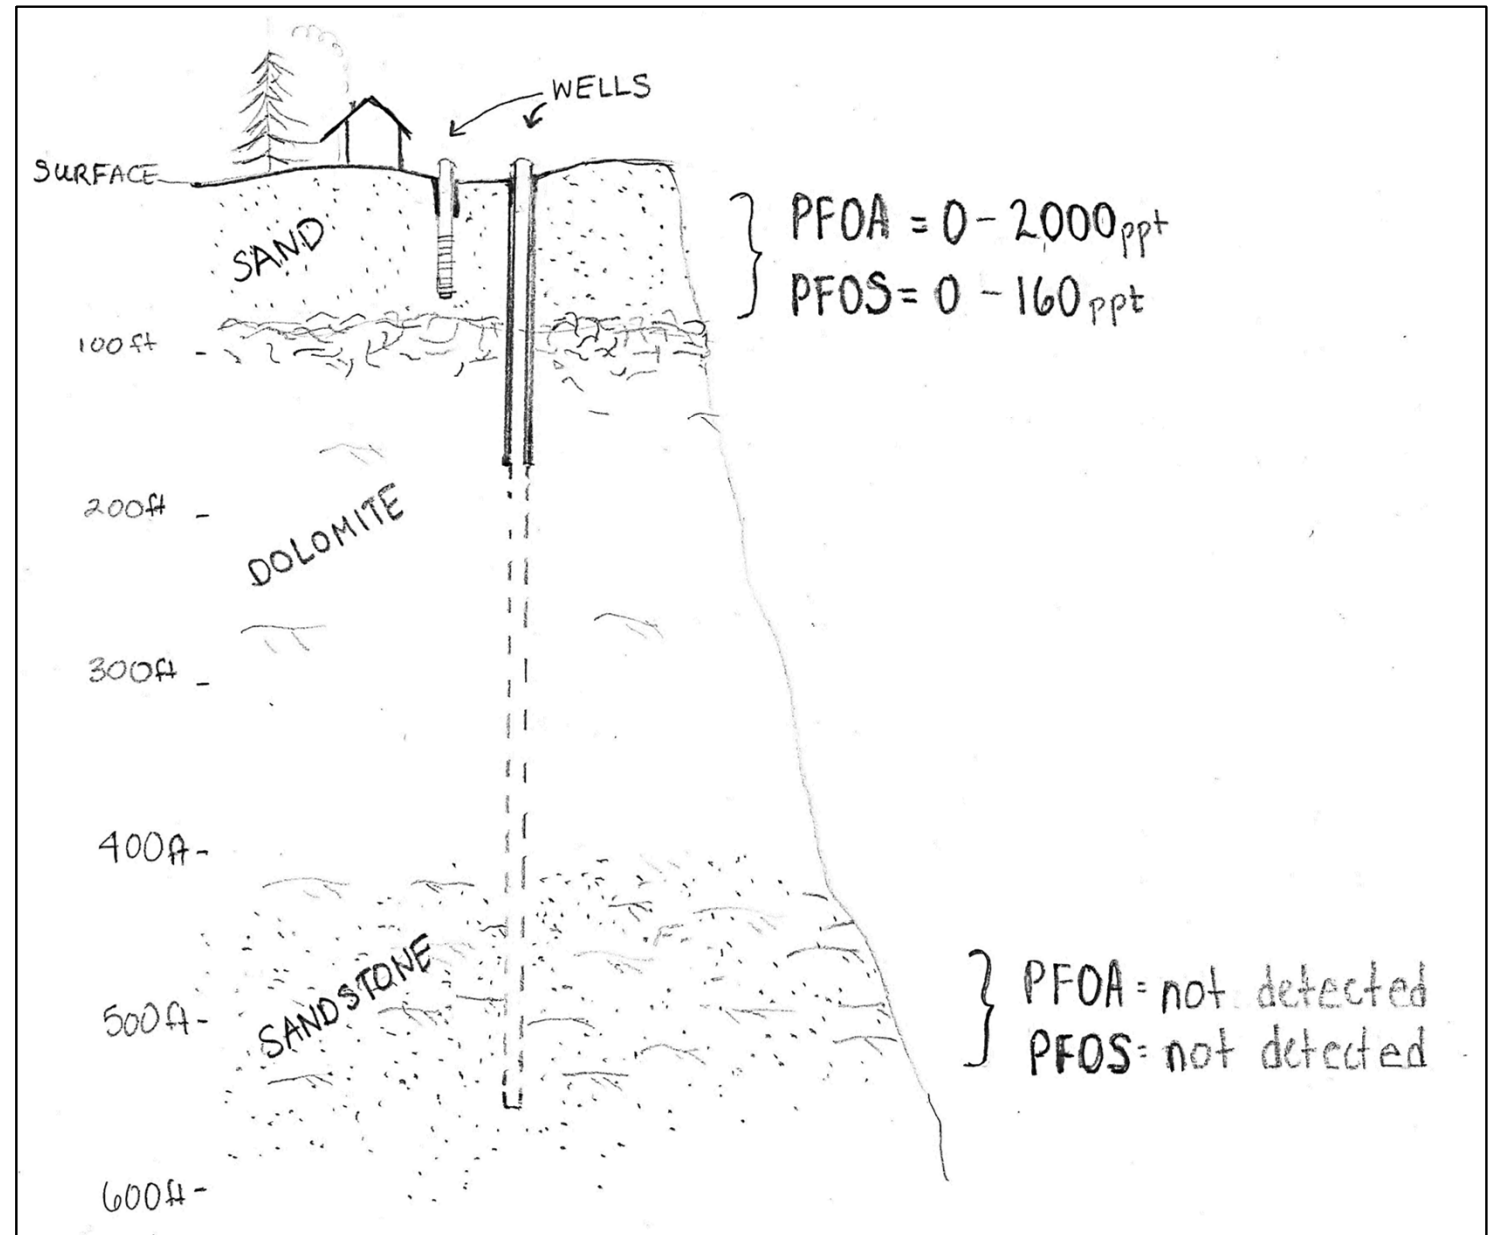 WELLS
SURFACE
SAND
PFOA = 0 - 2000ppt
PFOS = 0 - 160ppt
100ft
200ft
DOLOMITE
300ft
400ft
SANDSTONE
500ft
PFOA = not detected
PFOS = not detected
600ft